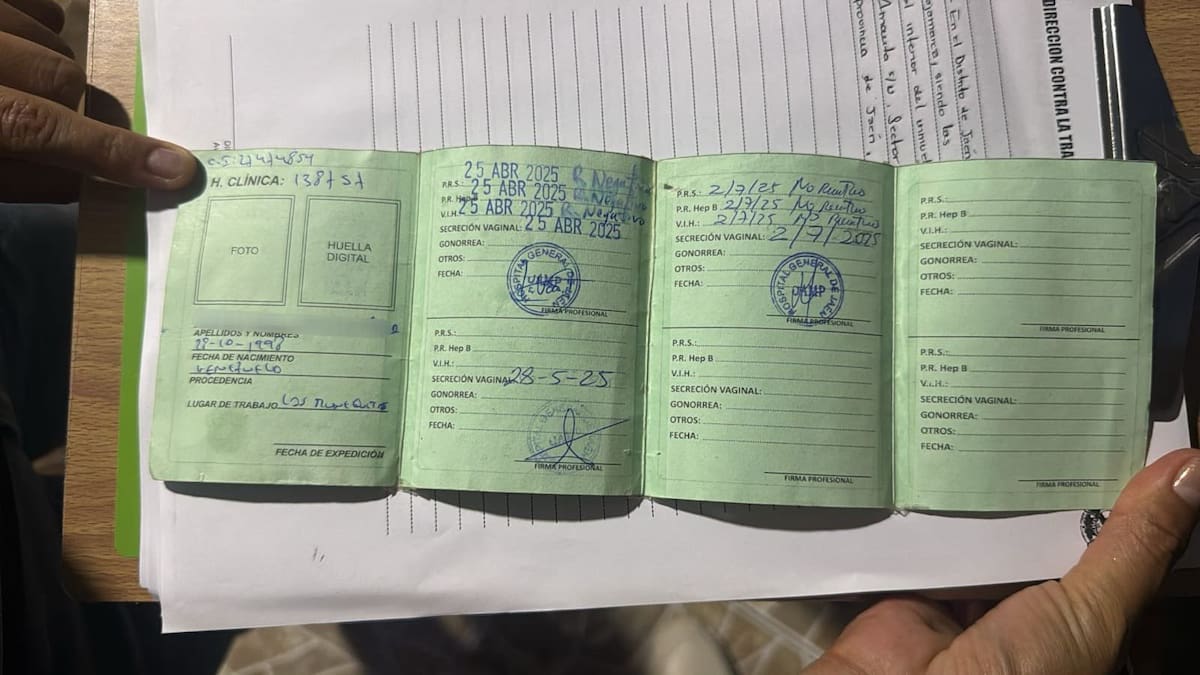 DIRECCION CONTRA LA TRA
En el Distrito de Jaén
siendo las
el interior del inmueb
S/N, Sector
provincia de Jaén,
H. CLÍNICA:
FOTO
HUELLA
DIGITAL
APELLIDOS Y NOMBRES
28-10-1998
FECHA DE NACIMIENTO
PROCEDENCIA
LUGAR DE TRABAJO
FECHA DE EXPEDICIÓN
25 ABR 2025
P.R.S.: 25 ABR 2025 R. Negativo
P.R. Hep B
V.I.H.: 25 ABR 2025 R. Negativo
SECRECIÓN VAGINAL: 25 ABR 2025
GONORREA:
OTROS:
FECHA:
HOSPITAL GENERAL DE JAEN
FIRMA PROFESIONAL
P.R.S.:
P.R. Hep B
V.I.H.:
SECRECIÓN VAGINAL 28-5-25
GONORREA:
OTROS:
FECHA:
FIRMA PROFESIONAL
P.R.S.: 2/7/25 No Reactivo
P.R. Hep B 2/7/25 No Reactivo
V.I.H.: 2/7/25 No Reactivo
SECRECIÓN VAGINAL: 2/7/2025
GONORREA:
OTROS:
FECHA:
HOSPITAL GENERAL DE JAEN
FIRMA PROFESIONAL
P.R.S.:
P.R. Hep B
V.I.H.:
SECRECIÓN VAGINAL:
GONORREA:
OTROS:
FECHA:
FIRMA PROFESIONAL
P.R.S.:
P.R. Hep B
V.I.H.:
SECRECIÓN VAGINAL:
GONORREA:
OTROS:
FECHA:
FIRMA PROFESIONAL
P.R.S.:
P.R. Hep B
V.I.H.:
SECRECIÓN VAGINAL:
GONORREA:
OTROS:
FECHA:
FIRMA PROFESIONAL